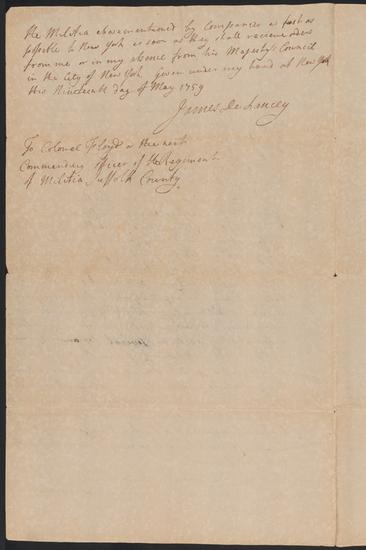 the Militia abovementioned by Companies as fast as
possible to New York as soon as they shall receive orders
from me or in my absence from his Majesty's Council
in the City of New York given under my hand at New York
this Nineteenth day of May 1759
James De Lancey
To Colonel Floyd or the next
Commanding officer of the Regiment
of Militia Suffolk County